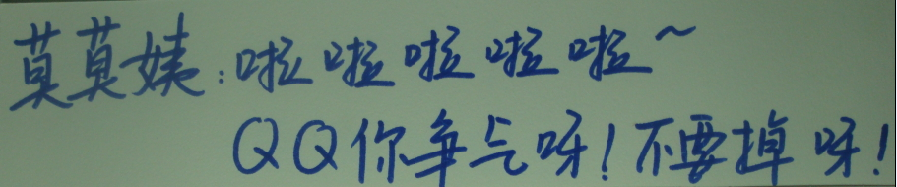 莫莫姨：啦啦啦啦啦~
QQ你争气呀！不要掉呀！